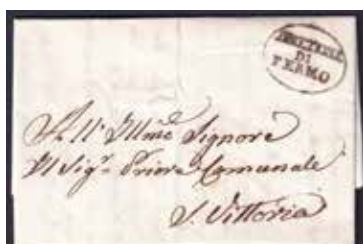 DIREZIONE
DI
FERMO
All'Illmo Signore
Il Sigr. Priore Comunale
S. Vittoria